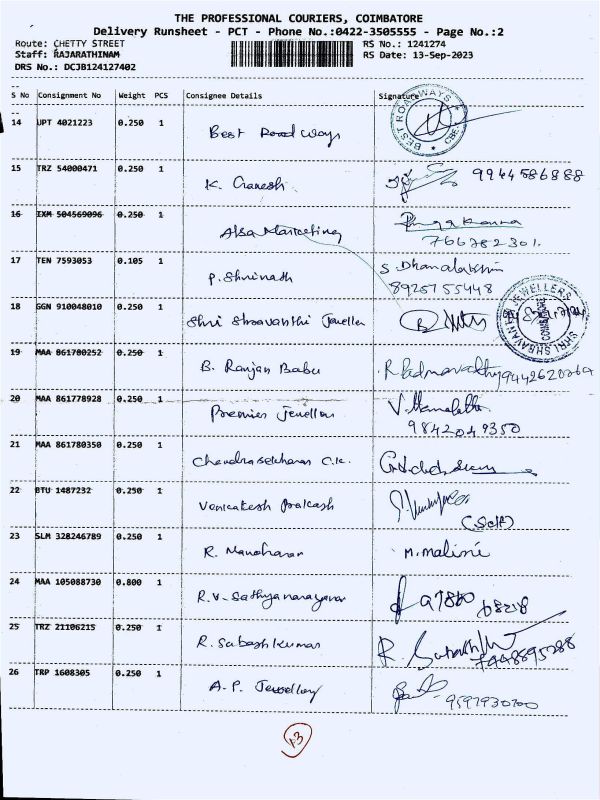 THE PROFESSIONAL COURIERS, COIMBATORE
Delivery Runsheet - PCT - Phone No.:0422-3505555 - Page No.:2
Route: CHETTY STREET RS No.: 1241274
Staff: RAJARATHINAM RS Date: 13-Sep-2023
DRS No.: DCJB124127402
S No Consignment No Weight PCS Consignee Details Signature
BEST ROADWAYS CBE
14 UPT 4021223 0.250 1 Best Road Ways
15 TRZ 54000471 0.250 1 K. Ganesh 9944586888
16 IXM 504569096 0.250 1 Alsa Marketing
766782301.
17 TEN 7593053 0.105 1 P. Shrinath S Dhanalakshmi
8925755448
18 GGN 910048010 0.250 1 Shri Shravanthi Jewellers
SHRI SHRAVANTHI JEWELLERS COIMBATORE
19 MAA 861700252 0.250 1 B. Ranjan Babu R Padmavathy
20 MAA 861778928 0.250 1 Premier Jewellers V. Hemalatha
9842049350
21 MAA 861780350 0.250 1 Chandrasekharan C.K.
22 BTU 1487232 0.250 1 Venkatesh Prakash
(Self)
23 SLM 328246789 0.250 1 R. Manoharan M. Malini
24 MAA 105088730 0.800 1 R.V. Sathyanarayanan 97880 68218
25 TRZ 21106215 0.250 1 R. Subash Kumar
26 TRP 1608305 0.250 1 A.P. Jewellery 9597930700
13